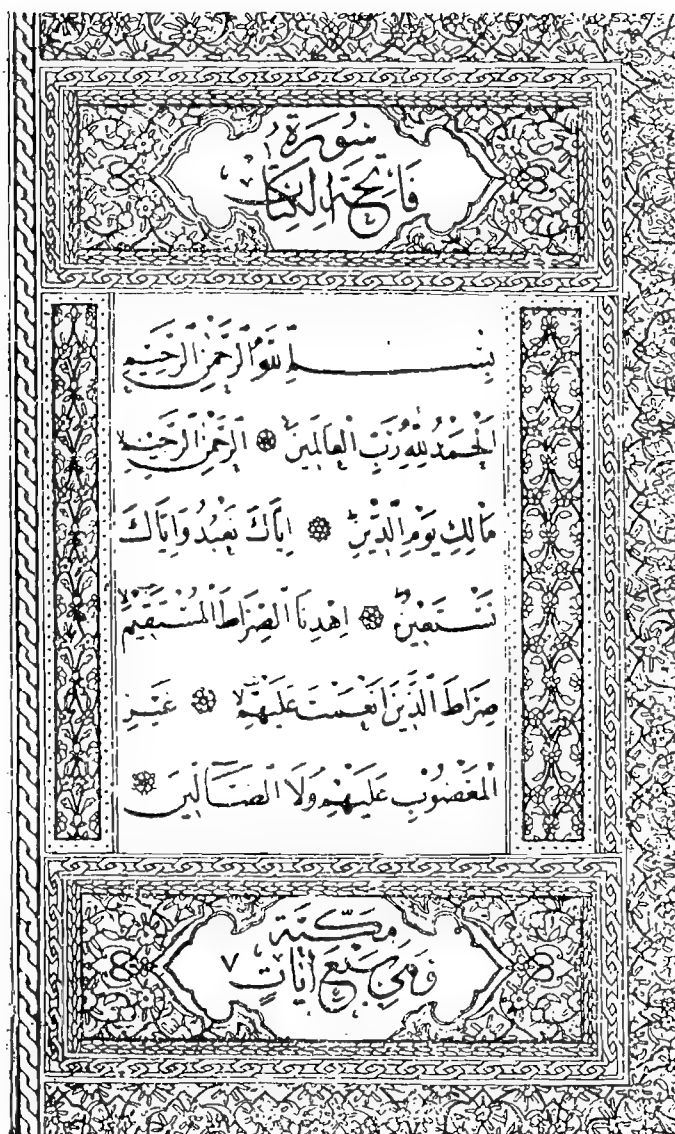 سُورَةُ
فَاتِحَةِ الْكِتَابِ
بِسْمِ اللّٰهِ الرَّحْمٰنِ الرَّحِيمِ
اَلْحَمْدُ لِلّٰهِ رَبِّ الْعَالَمِينَ ۞ اَلرَّحْمٰنِ الرَّحِيمِ
مَالِكِ يَوْمِ الدِّينِ ۞ اِيَّاكَ نَعْبُدُ وَاِيَّاكَ
نَسْتَعِينُ ۞ اِهْدِنَا الصِّرَاطَ الْمُسْتَقِيمَ
صِرَاطَ الَّذِينَ اَنْعَمْتَ عَلَيْهِمْ ۞ غَيْرِ
الْمَغْضُوبِ عَلَيْهِمْ وَلَا الضَّٓالِّينَ ۞
مَكِّيَّة
وَهِيَ سَبْعُ اٰيَاتٍ ٧